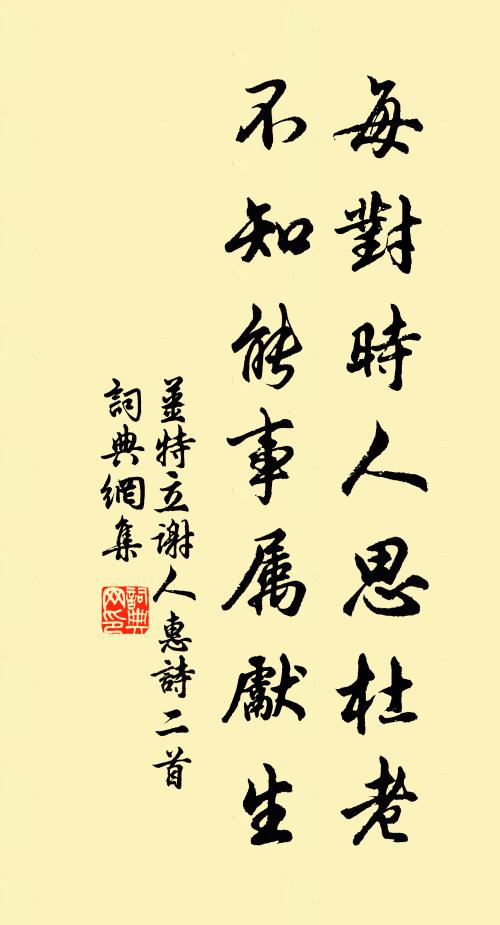 每對時人思杜老
不知能事属獻生
姜特立谢人惠詩二首
詞典網集
詞典网印